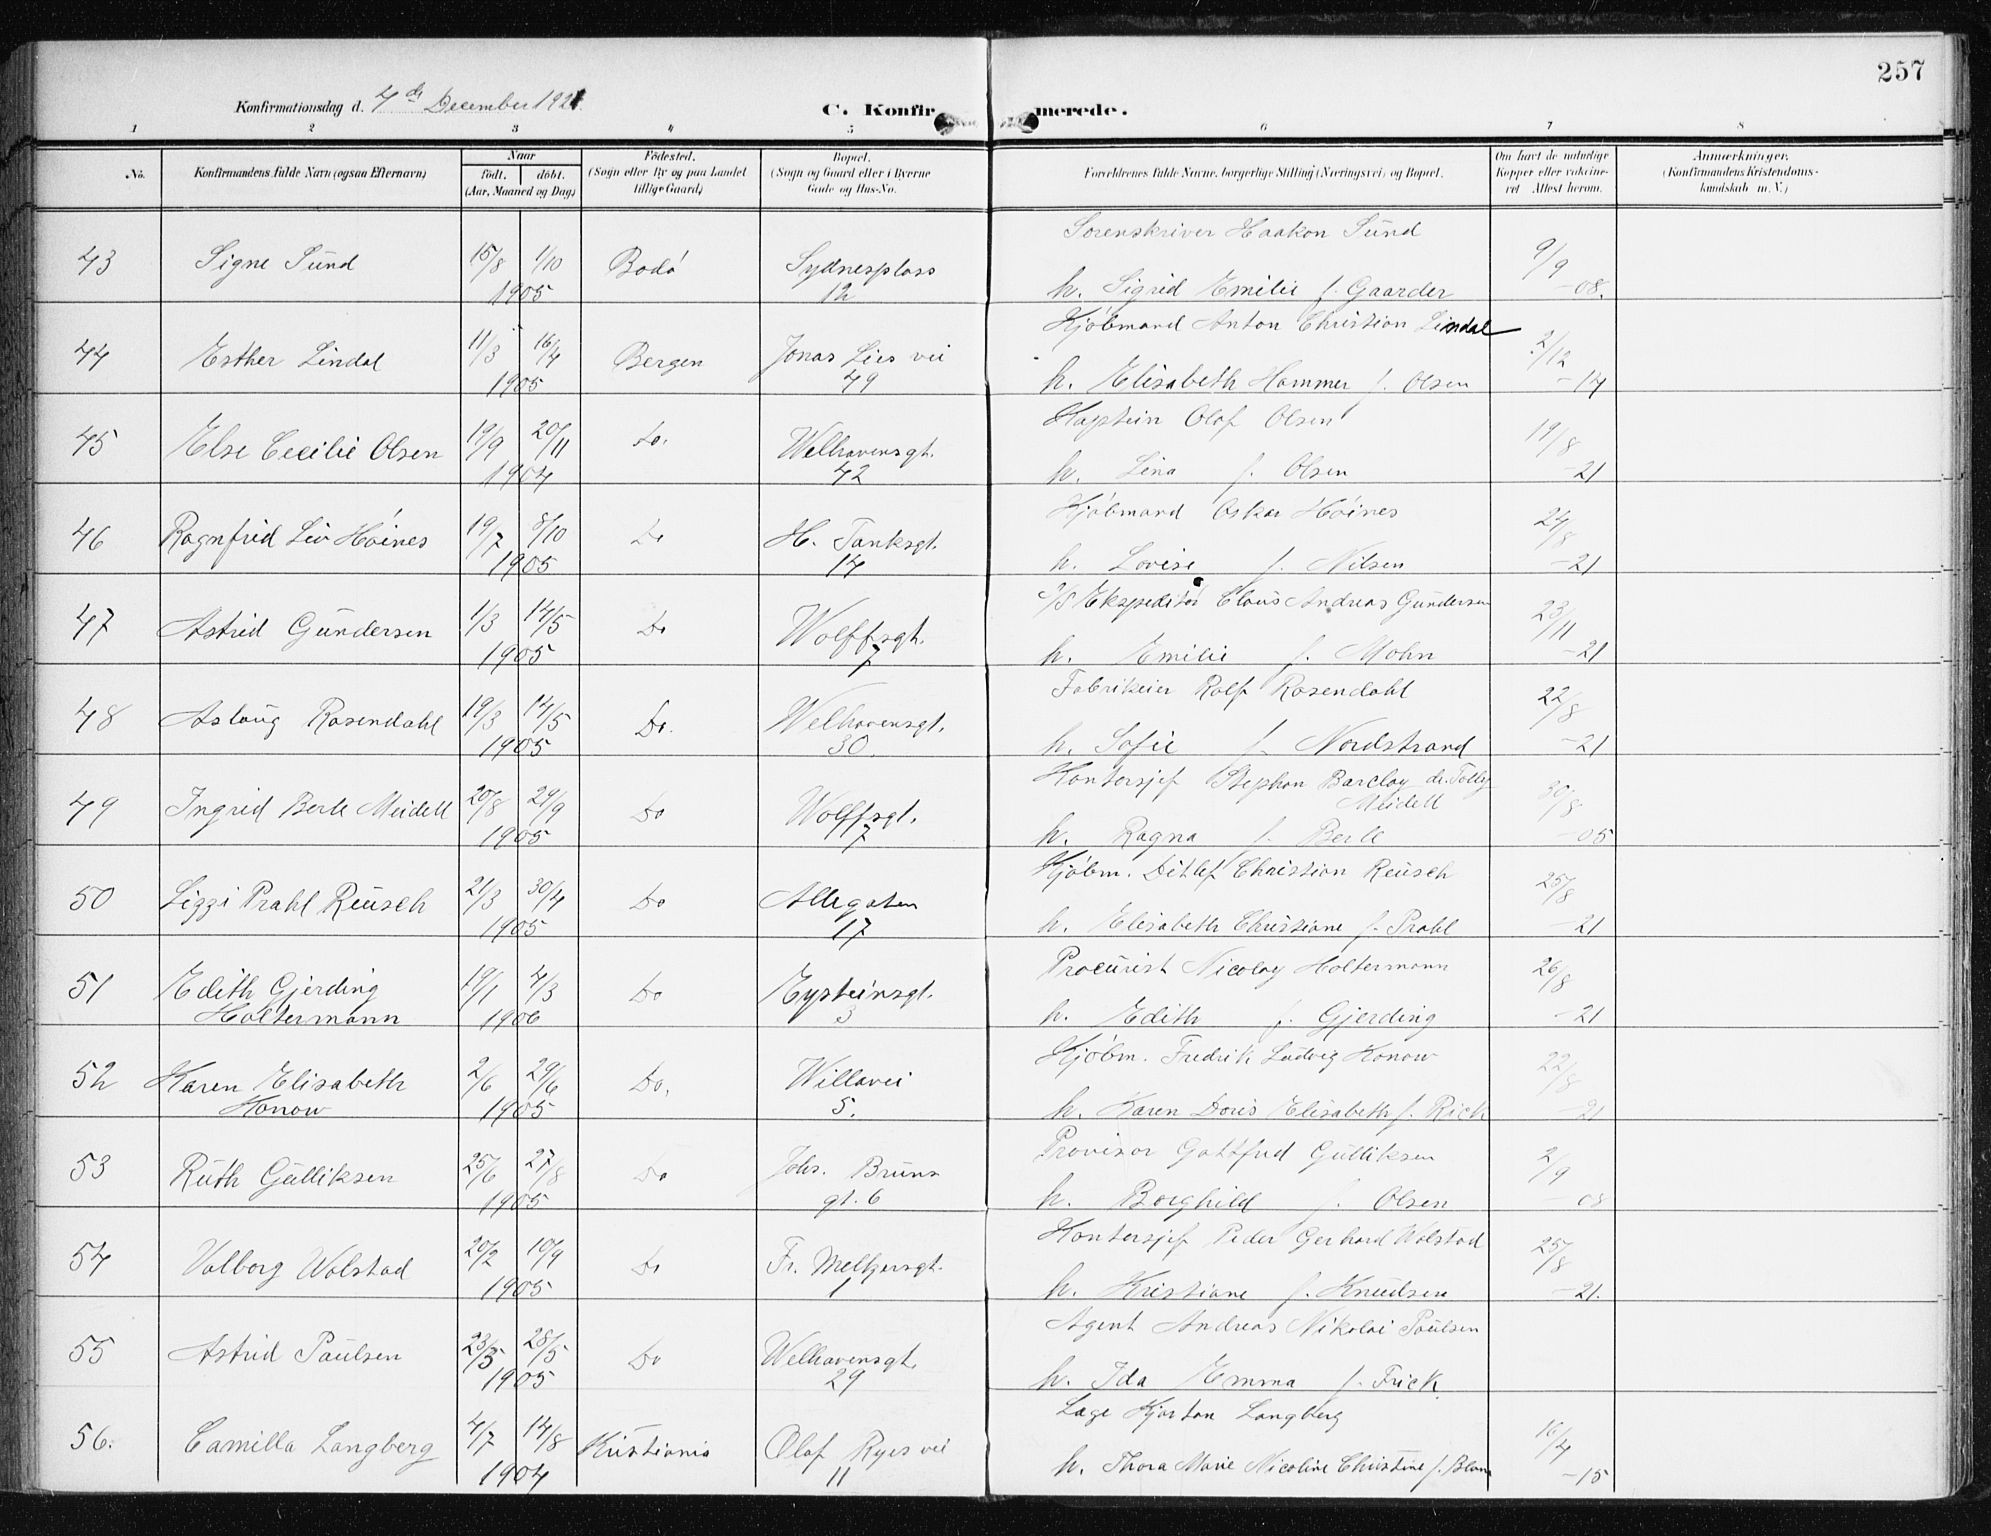 257
Konfirmationsdag d. 4de December 1921.
C. Konfirmerede.
1 2 3 4 5 6 7 8
No. Konfirmandens fulde Navn (ogsaa Efternavn)
Naar
født. døbt.
(Aar, Maaned og Dag)
Fødested.
(Sogn eller By og paa Landet
tillige Gaard)
Bopæl.
(Sogn og Gaard eller i Byerne
Gade og Hus-No.
Forældrenes fulde Navne, borgerlige Stilling (Næringsvei) og Bopæl.
Om havt de naturlige
Kopper eller vaksine-
ret Attest herom.
Anmærkninger.
(Konfirmandens Kristendoms-
kundskab m. V.)
43 Signe Sund 15/8 1/10 1905 Bodø Sydnesplass 12
Sorenskriver Haakon Sund
h. Sigrid Emilie f. Gaarder 9/9 -08.
44 Esther Lindal 11/3 16/4 1905 Bergen Jonas Lies vei 49
Kjøbmand Anton Christian Lindal
h. Elisabeth Hammer f. Olsen 2/12 -14
45 Else Cecilie Olsen 19/9 20/11 1904 do. Welhavensgt. 42
Kaptein Olaf Olsen
h. Lina f. Olsen 19/8 21
46 Ragnfrid Liv Høines 19/7 8/10 1905 Do H. Tanksgt. 14
Kjøbmand Oskar Høines
h. Lovise f. Nilsen 24/8 -21
47 Astrid Gundersen 1/3 14/5 1905 Do Wolffsgt. 7
D/S Ekspeditør Claus Andreas Gundersen
h. Emilie f. Mohn 23/11 -21
48 Aslaug Rosendahl 19/3 14/5 1905 Do. Welhavensgt. 30.
Fabrikeier Rolf Rosendahl
h. Sofie f. Nordstrand 22/8 -21
49 Ingrid Berle Meidell 20/8 24/9 1905 Do Wolffsgt. 7
Kontorsjef Stephan Barclay de Tolly
Meidell
h. Ragna f. Berle 30/8 -05
50 Lizzi Prahl Reusch 21/3 30/4 1905 Do Allegaten 17
Kjøbm. Ditlef Christian Reusch
h. Elisabeth Christiane f. Prahl 25/8 -21
51 Edith Gjerding
Holtermann 19/1 4/3 1906 Do Eysteinsgt. 3
Procurist Nicolay Holtermann
h. Edith f. Gjerding 26/8 -21
52 Karen Elisabeth
Konow 2/6 29/6 1905 Do. Willavei 5.
Kjøbm. Fredrik Ludvig Konow
h. Karen Doris Elisabeth f. Rick 22/8 -21
53 Ruth Gulliksen 25/6 27/8 1905 Do Johs. Bruns
gt. 6
Provisor Gottfred Gulliksen
h. Borghild f. Olsen 2/9 -08
54 Valborg Wolstad 20/2 10/9 1905 Do Fr. Meltzersgt. 1
Kontorsjef Peder Gerhard Wolstad
h. Kristiane f. Knudsen 25/8 -21.
55 Astrid Paulsen 23/3 28/5 1905 Do Welhavensgt. 29
Agent Andreas Nikolai Paulsen
h. Ida Emma f. Frick.
56. Camilla Langberg 4/7 14/8 1904 Kristiania Olaf Ryes vei 11
Læge Kjartan Langberg
h. Thora Marie Nicoline Christine f. Blom 16/4 -15